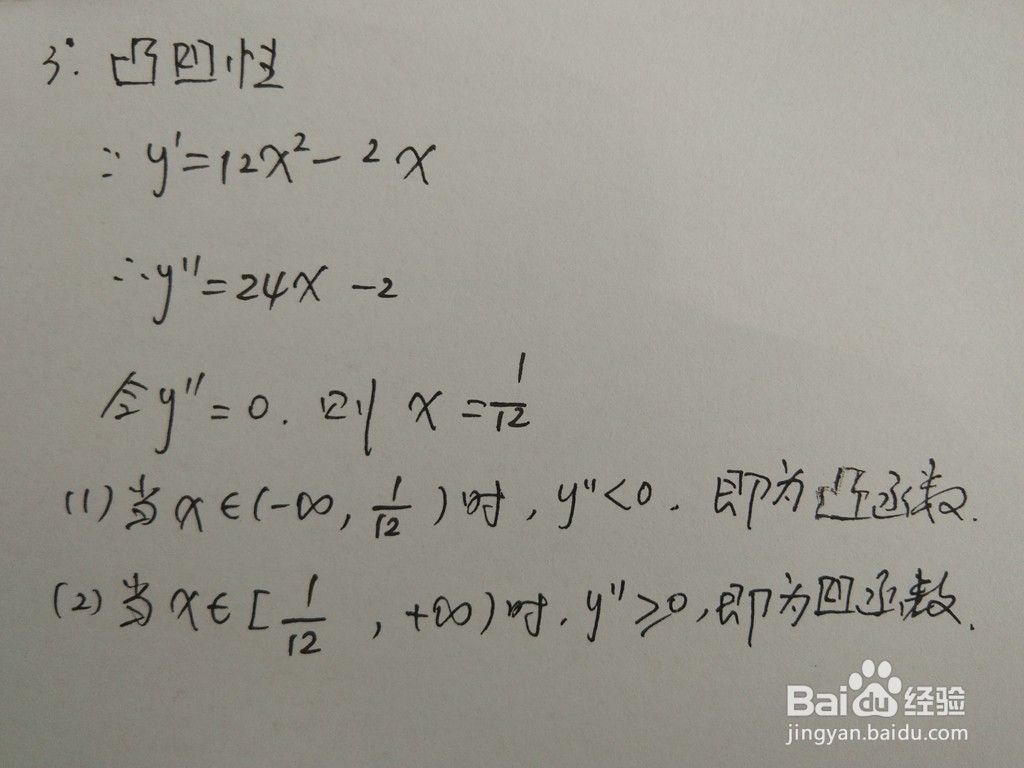 3°. 凸凹性
∵ y'=12x²-2x
∴ y''=24x-2
令y''=0. 则 x=1/12
(1)当x∈(-∞, 1/12)时, y''<0. 即为凸函数.
(2)当x∈[1/12, +∞)时. y''≥0, 即为凹函数.
Bai du 经验
jingyan.baidu.com